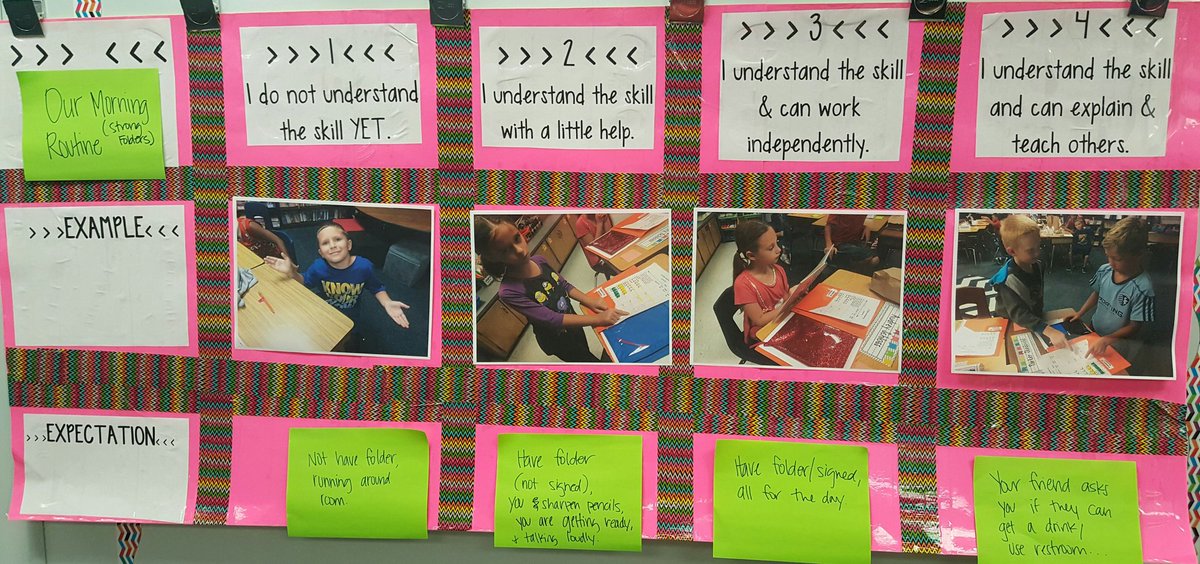 > > > < < <
Our Morning
(Strong
Folders)
Routine
> > > 1 < < <
I do not understand
the skill YET.
> > > 2 < < <
I understand the skill
with a little help.
> > > 3 < < <
I understand the skill
& can work
independently.
> > > 4 < < <
I understand the skill
and can explain &
teach others.
> > >EXAMPLE< < <
KNOW
> > >EXPECTATION< < <
Not have folder,
running around
room.
Have folder
(not signed),
you & sharpen pencils,
you are getting ready,
+ talking loudly.
Have folder/signed,
all for the day
Your friend asks
you if they can
get a drink/
use restroom...